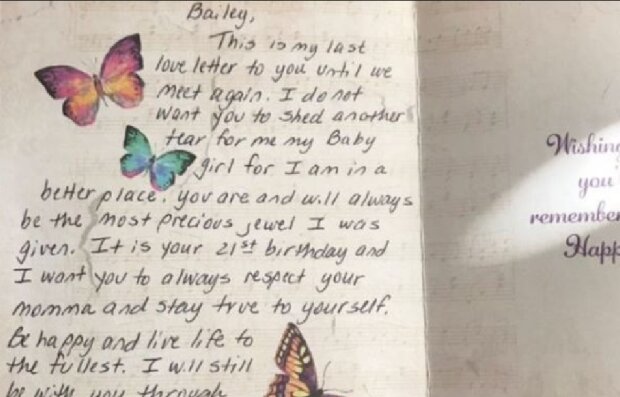 Bailey,
This is my last
love letter to you until we
meet again. I do not
want you to shed another
tear for me my Baby
girl for I am in a
better place. you are and will always
be the most precious jewel I was
given. It is your 21st birthday and
I want you to always respect your
momma and stay true to yourself.
Be happy and live life to
the fullest. I will still
be with you through
Wishing
you'
remember
Happ